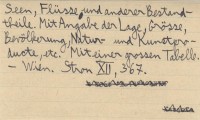 Seen, Flüsse, und anderer Bestand-
theile. Mit Angabe der Lage, Grösse,
Bevölkerung, Natur- und Kunstpro-
ducte, etc. Mit einer grossen Tabelle.
- Wien. Stron XII, 367.